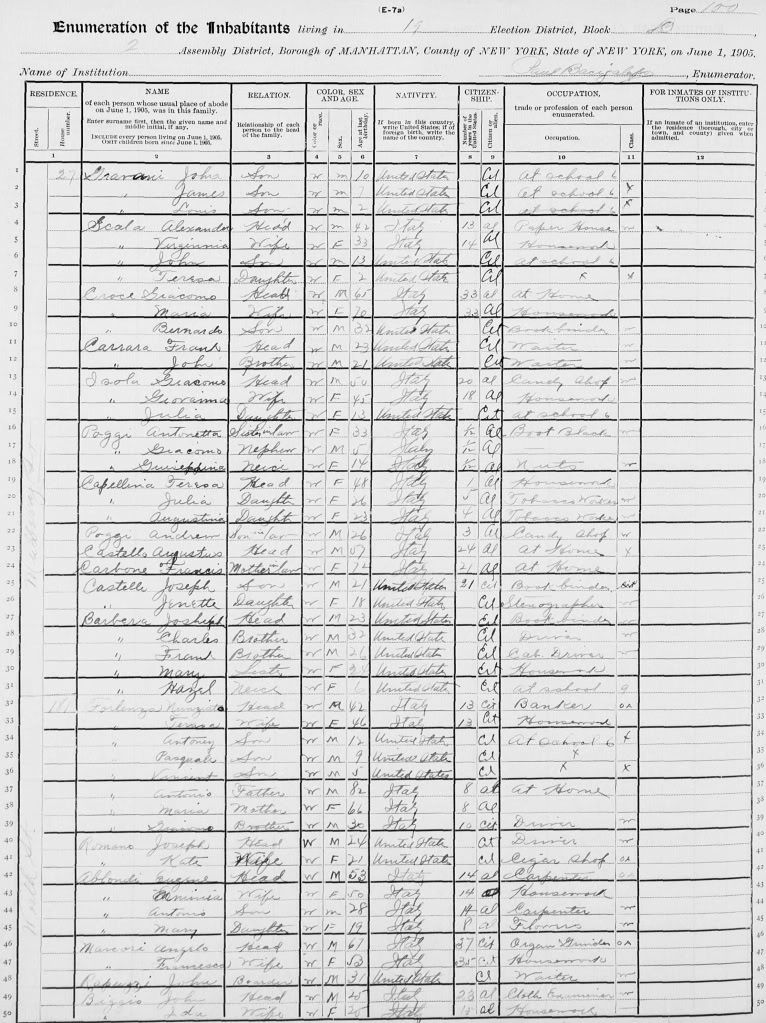 (E-7a)
Page 100
Enumeration of the Inhabitants living in 19 Election District, Block
2 Assembly District, Borough of MANHATTAN, County of NEW YORK, State of NEW YORK, on June 1, 1905.
Name of Institution , Enumerator.
RESIDENCE. NAME RELATION. COLOR, SEX AND AGE. NATIVITY. CITIZEN-SHIP. OCCUPATION, FOR INMATES OF INSTITU-TIONS ONLY.
Street. House number. of each person whose usual place of abode on June 1, 1905, was in this family. Enter surname first, then the given name and middle initial, if any. INCLUDE every person living on June 1, 1905. OMIT children born since June 1, 1905. Relationship of each person to the head of the family. Color or race. Sex. Age at last birthday. If born in this country, write United States; if of foreign birth, write the name of the country. Number of years in the United States Citizen or alien. trade or profession of each person enumerated. Occupation. Class. If an inmate of an institution, enter the residence (borough, city or town, and county) given when admitted.
1 2 3 4 5 6 7 8 9 10 11 12
1 27 John Son W M 10 United States Cit At school 6
2 " James Son W M 7 United States Cit at school 6 x
3 " Louis Son W M 2 United States Cit at school 6 x
4 Scala Alexander Head W M 42 Italy 13 al Paper House W
5 " Virginnia Wife W F 33 Italy 14 Al Housework
6 " John Son W M 13 United States Cit at school 6
7 " Teresa Daughter W F 2 United States Cit x x
8 Croce Giacomo Head W M 65 Italy 33 al at Home
9 " Maria Wife W F 70 Italy 33 al Housework
10 " Bernardo Son W M 32 United States Cit Bookbinder W
11 Carrara Frank Head W M 23 United States Cit Waiter W
12 " John Brother W M 21 United States Cit Waiter W
13 Isola Giacomo Head W M 50 Italy 20 al Candy Shop W
14 " Giovanna Wife W F 45 Italy 18 Al Housework
15 " Julia Daughter W F 13 United States Cit at school 6
16 Poggi Antonetta Sister in law W F 33 Italy 1/12 Al Boot Black W
17 " Giacomo Nephew W M 5 Italy 1/12 Al
18 " Guiseppina Neice W F 14 Italy 1/12 Al Nuts W
19 Capellina Teresa Head W F 48 Italy 1 Al Housework
20 " Julia Daught W F 26 Italy 5 Al Tobacco W
21 " Augustina Daught W F 23 Italy 4 Al Tobacco W
22 Poggi Andrew Son in law W M 26 Italy 3 Al Candy Shop W
23 Castello Augustus Head W M Italy 24 Al at Home x
24 Carbone Francis Mother in law W F 74 Italy 21 Al at Home
25 Castelle Joseph Son W M 21 United States 21 Cit Bookbinder
26 " Jenette Daughter W F 18 United States Cit Stenographer W
27 Barbera Joshiph Head W M 23 United States Cit Bookbinder W
28 " Charles Brother W M 32 United States Cit Driver W
29 " Frank Brother W M 26 United States Cit Cab Driver W
30 " Mary Sister W F United States Cit Housework
31 " Hazel Neice W F 6 United States Cit at school 9
32 Forlenza Head W M 42 Italy 13 Cit Banker OA
33 " Teresa Wife W F 46 Italy 13 Cit Housework
34 " Antoney Son W M 12 United States Cit At school 6 x
35 " Pasquale Son W M 9 United States Cit x
36 " Vincent Son W M 5 United States Cit x x
37 " Antonio Father W M 82 Italy 8 al at Home
38 " Maria Mother W F 66 Italy 8 Al
39 " Brother W M 30 Italy 10 Cit Driver W
40 Romano Joseph Head W M 24 United States Cit Driver W
41 " Kate Wife W F 21 United States Cit Cigar Shop OA
42 Ablondi Eugene Head W M 53 Italy 14 al Carpenter OA
43 " Erminia Wife W F 50 Italy 14 al Housework
44 " Antonio Son W M 28 Italy 14 al Carpenter W
45 " Mary Daughter W F 19 Italy 8 al Flowers W
46 Marcori Angelo Head W M 67 Italy 37 Cit Organ Grinder OA
47 " Francesca Wife W F 53 Italy 35 Cit Housework
48 John Boarder W M 31 United States Cit Waiter W
49 Biggio John Head W M 25 Italy 23 al Cloth Examiner W
50 " Ida Wife W F 20 Italy al Housework